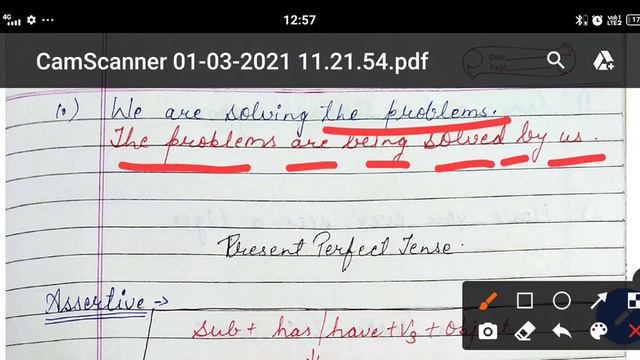 12:57
4G
Vo) 1
LTE2
17
CamScanner 01-03-2021 11.21.54.pdf
Date
Page
10) We are solving the problems.
The problems are being solved by us.
Present Perfect Tense.
Assertive →
Sub + has/have + V3 + object